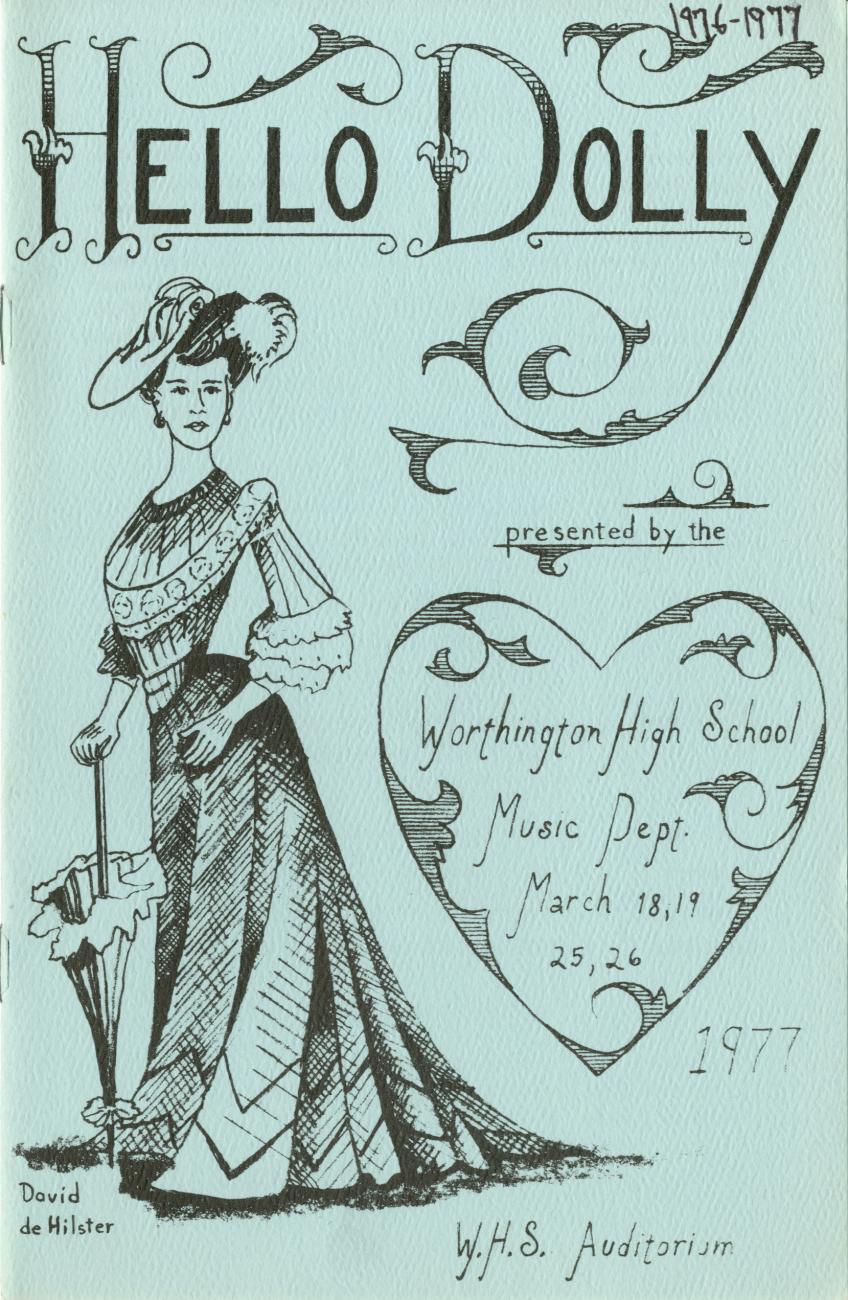 1976-1977
HELLO DOLLY
presented by the
Worthington High School
Music Dept.
March 18,19
25, 26
1977
David
de Hilster
W.H.S. Auditorium